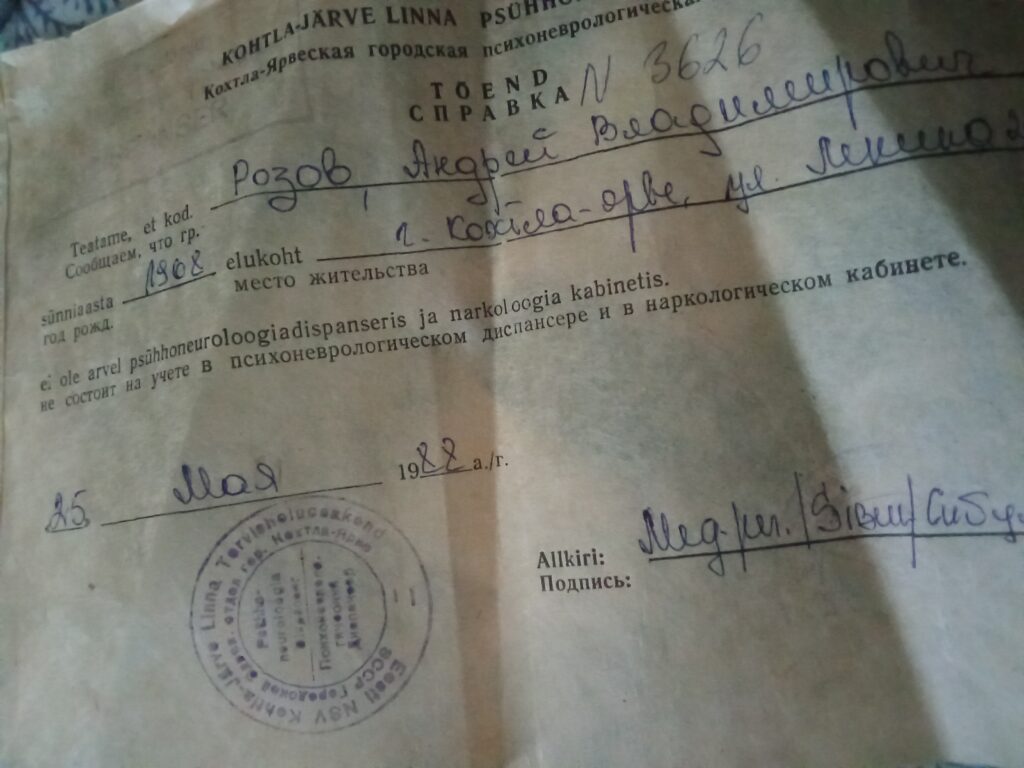 KOHTLA-JÄRVE LINNA PSÜHHO
Кохтла-Ярвеская городская психоневрологическая
TOEND
СПРАВКА N 3626
Teatame, et kod.
Сообщаем, что гр. Розов, Андрей Владимирович
sünniaasta 1968 elukoht г. Кохтла-Ярве, ул. Ленина
год рожд. место жительства
ei ole arvel psühhoneuroloogiadispanseris ja narkoloogia kabinetis.
не состоит на учете в психоневрологическом диспансере и в наркологическом кабинете.
25 Мая 1988 a./г.
Allkiri:
Подпись: Мед.
Kohtla-Järve Linna Tervishoiuosakond
Eesti NSV
ЭССР Городской здрав. отдел гор. Кохтла-Ярве